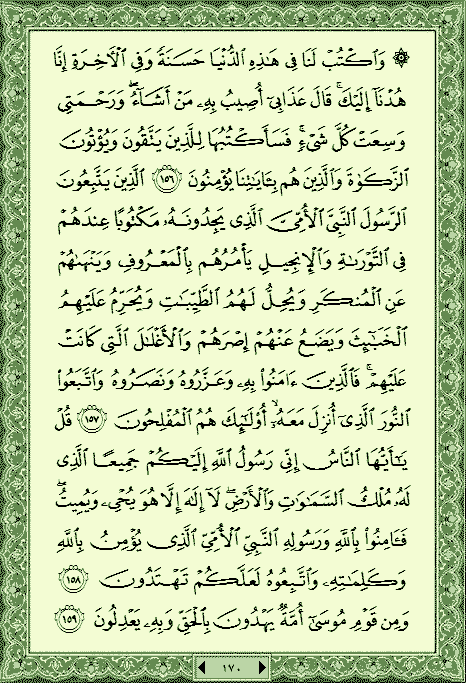 ۞ وَٱكْتُبْ لَنَا فِى هَٰذِهِ ٱلدُّنْيَا حَسَنَةً وَفِى ٱلْءَاخِرَةِ إِنَّا
هُدْنَآ إِلَيْكَ ۚ قَالَ عَذَابِىٓ أُصِيبُ بِهِۦ مَنْ أَشَآءُ ۖ وَرَحْمَتِى
وَسِعَتْ كُلَّ شَىْءٍ ۚ فَسَأَكْتُبُهَا لِلَّذِينَ يَتَّقُونَ وَيُؤْتُونَ
ٱلزَّكَوٰةَ وَٱلَّذِينَ هُم بِـَٔايَٰتِنَا يُؤْمِنُونَ ١٥٦ ٱلَّذِينَ يَتَّبِعُونَ
ٱلرَّسُولَ ٱلنَّبِىَّ ٱلْأُمِّىَّ ٱلَّذِى يَجِدُونَهُۥ مَكْتُوبًا عِندَهُمْ
فِى ٱلتَّوْرَىٰةِ وَٱلْإِنجِيلِ يَأْمُرُهُم بِٱلْمَعْرُوفِ وَيَنْهَىٰهُمْ
عَنِ ٱلْمُنكَرِ وَيُحِلُّ لَهُمُ ٱلطَّيِّبَٰتِ وَيُحَرِّمُ عَلَيْهِمُ
ٱلْخَبَٰٓئِثَ وَيَضَعُ عَنْهُمْ إِصْرَهُمْ وَٱلْأَغْلَٰلَ ٱلَّتِى كَانَتْ
عَلَيْهِمْ ۚ فَٱلَّذِينَ ءَامَنُوا۟ بِهِۦ وَعَزَّرُوهُ وَنَصَرُوهُ وَٱتَّبَعُوا۟
ٱلنُّورَ ٱلَّذِىٓ أُنزِلَ مَعَهُۥٓ ۙ أُو۟لَٰٓئِكَ هُمُ ٱلْمُفْلِحُونَ ١٥٧ قُلْ
يَٰٓأَيُّهَا ٱلنَّاسُ إِنِّى رَسُولُ ٱللَّهِ إِلَيْكُمْ جَمِيعًا ٱلَّذِى
لَهُۥ مُلْكُ ٱلسَّمَٰوَٰتِ وَٱلْأَرْضِ ۖ لَآ إِلَٰهَ إِلَّا هُوَ يُحْىِۦ وَيُمِيتُ ۖ
فَـَٔامِنُوا۟ بِٱللَّهِ وَرَسُولِهِ ٱلنَّبِىِّ ٱلْأُمِّىِّ ٱلَّذِى يُؤْمِنُ بِٱللَّهِ
وَكَلِمَٰتِهِۦ وَٱتَّبِعُوهُ لَعَلَّكُمْ تَهْتَدُونَ ١٥٨
وَمِن قَوْمِ مُوسَىٰٓ أُمَّةٌ يَهْدُونَ بِٱلْحَقِّ وَبِهِۦ يَعْدِلُونَ ١٥٩
١٧٠